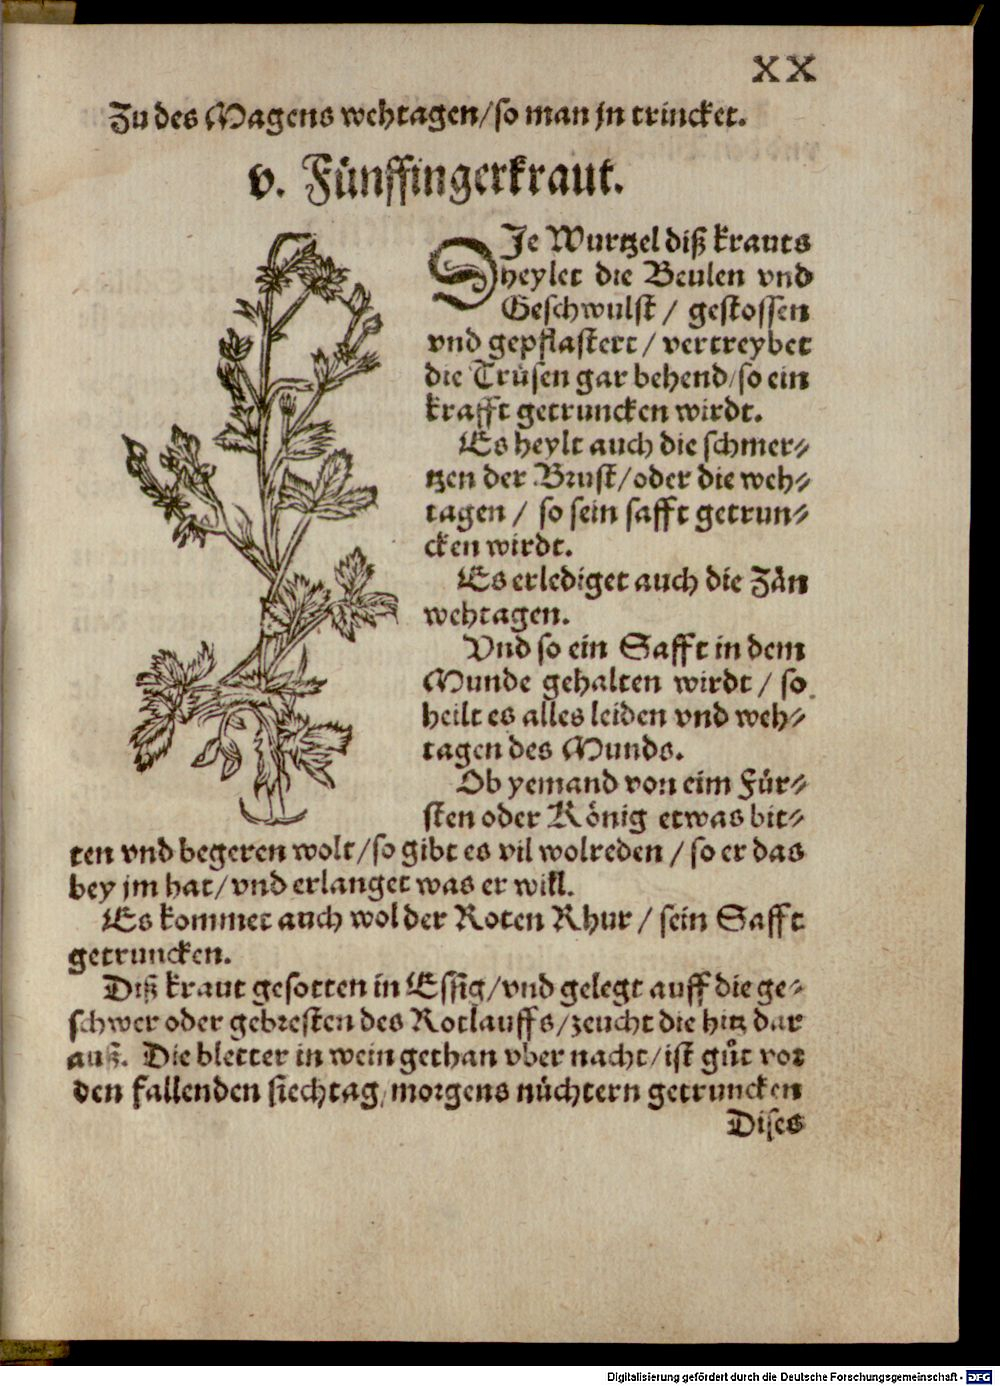 XX
Zu des Magens wehtagen/so man jn trincket.
v. Fünffingerkraut.
DJe Wurtzel diß krauts
heylet die Beulen vnd
Geschwulst / gestossen
vnd gepflastert / vertreybet
die Trůsen gar behend/so ein
krafft getruncken wirdt.
Es heylt auch die schmer⸗
tzen der Brust/oder die weh⸗
tagen / so sein safft getrun⸗
cken wirdt.
Es erlediget auch die Zän
wehtagen.
Vnd so ein Safft in dem
Munde gehalten wirdt / so
heilt es alles leiden vnd weh⸗
tagen des Munds.
Ob yemand von eim Für⸗
sten oder König etwas bit⸗
ten vnd begeren wolt/so gibt es vil wolreden / so er das
bey jm hat/vnd erlanget was er will.
Es kommet auch wol der Roten Rhur / sein Safft
getruncken.
Diß kraut gesotten in Essig/vnd gelegt auff die ge⸗
schwer oder gebresten des Rotlauffs/zeucht die hitz dar
auß. Die bletter in wein gethan vber nacht/ist gůt vor
den fallenden siechtag/morgens nüchtern getruncken
Dises
Digitalisierung gefördert durch die Deutsche Forschungsgemeinschaft - DFG